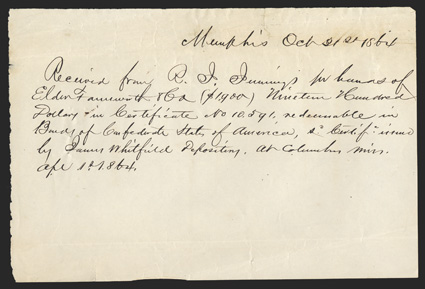 Memphis Oct 21st 1864
Received from R. J. Jennings pr hands of
Elder & Co ($1900) Nineteen Hundred
Dollars in Certificate No 10.591, redeemable in
Bonds of Confederate States of America, sd Certift issued
by James Whitfield Depository, at Columbus Miss.
Apl 1st 1864.